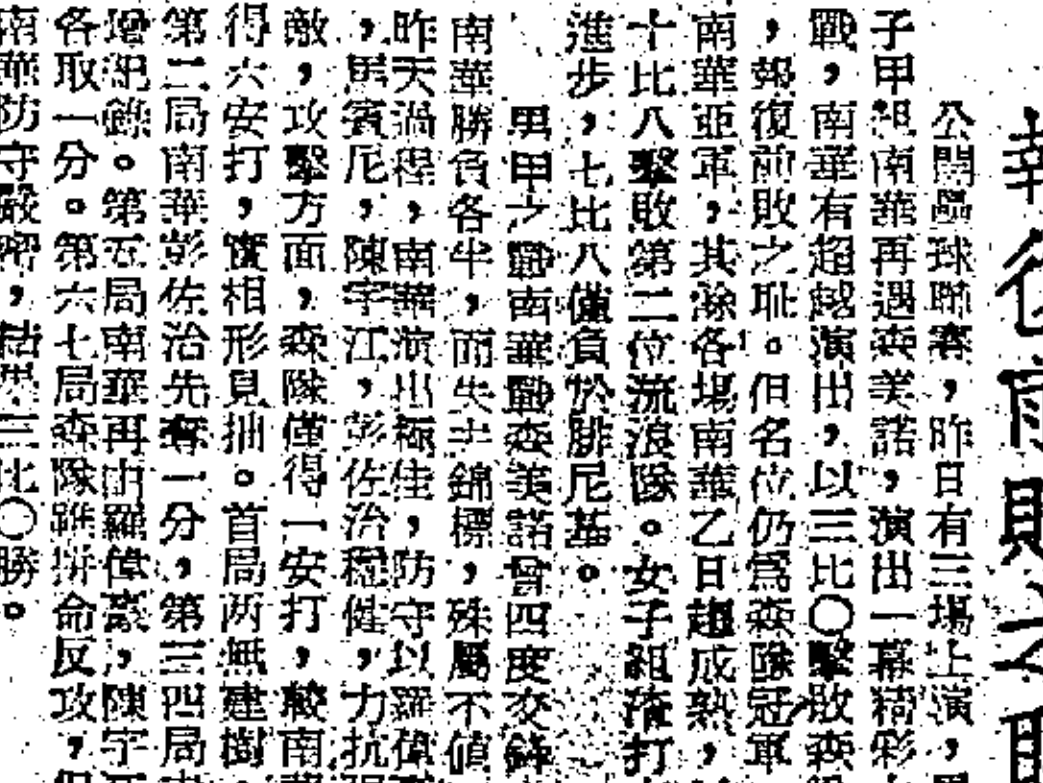 後雨
公開壘球聯賽，昨日有三場上演，
子甲組南華再遇森美諾，演出一幕精彩
戰，南華有超越演出，以三比〇擊敗森
，報復前敗之耻。但名位仍爲森隊冠軍
南華亞軍，其餘各場南華乙日趨成熟，
十比八擊敗第二位流浪隊。女子組隆打
進步，七比八僅負於腓尼基。
男甲之戰南華戰森美諾曾四度交鋒
南華勝負各半，而失去錦標，殊屬不值
昨天過程，南華演出極佳，防守以羅偉
，馬賓尼，陳宇江，彭佐治穩健，力抗
敵，攻擊方面，森隊僅得一安打，較南
得六安打，實相形見拙。首局兩無建樹
第二局南華彭佐治先奪一分，第三四局
增紀錄。第五局南華再由羅偉豪，陳宇
各取一分。第六七局森隊雖拼命反攻，
南華防守嚴密，結果三比〇勝。